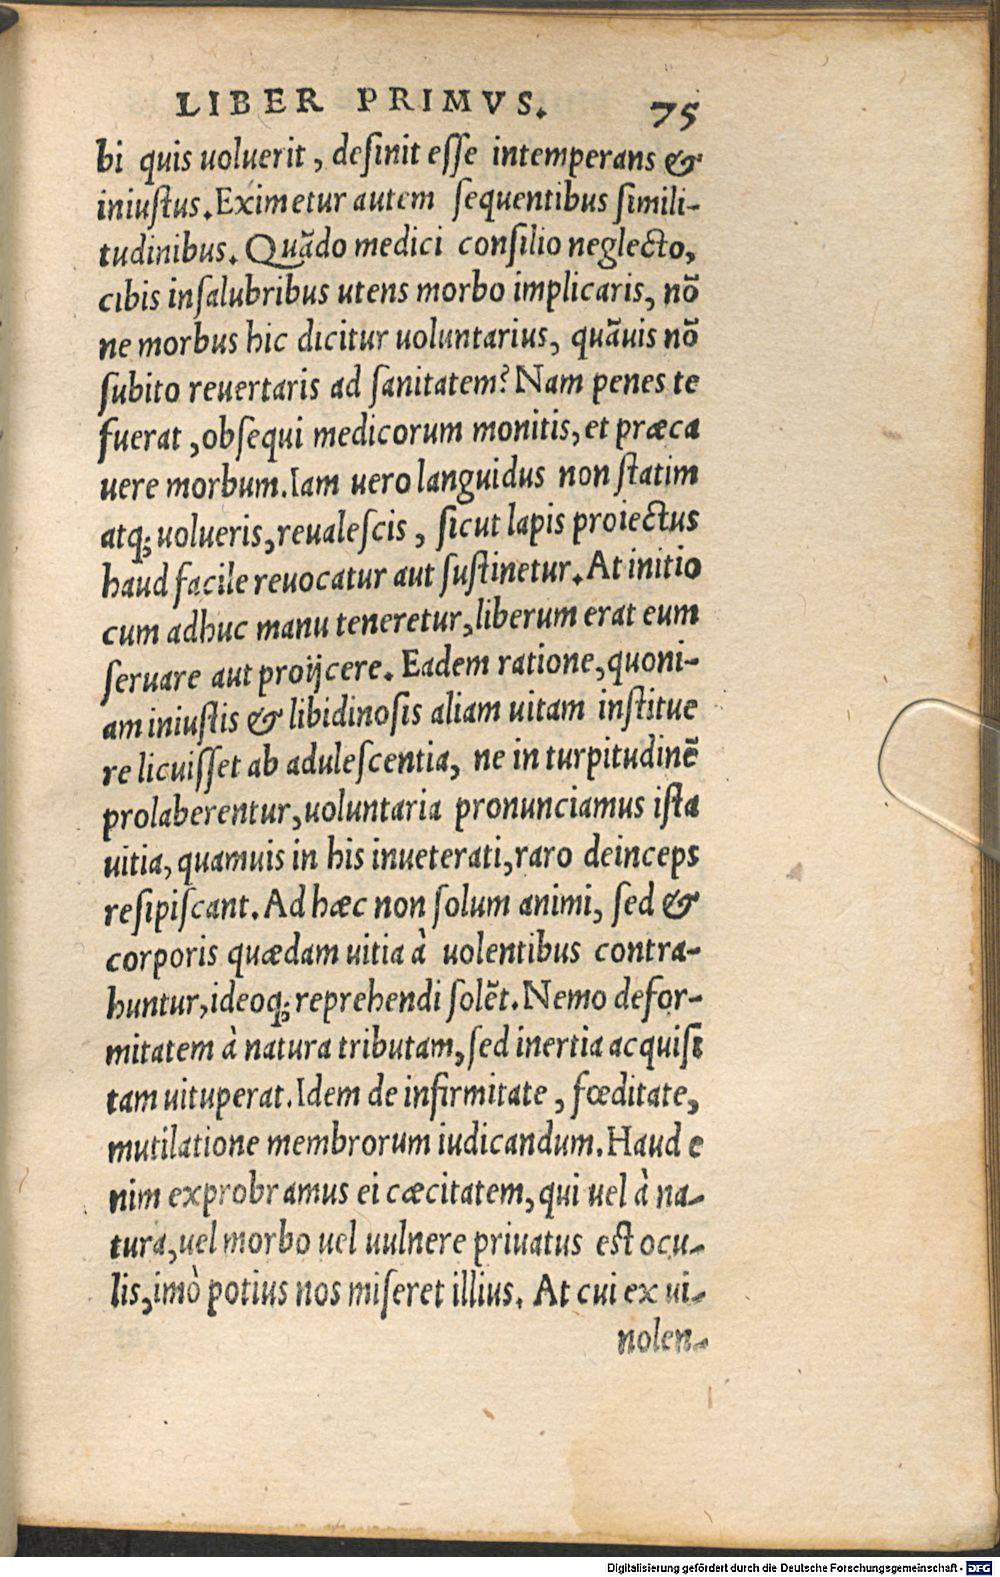 LIBER PRIMVS. 75
bi quis uoluerit, desinit esse intemperans &
iniustus. Eximetur autem sequentibus simili-
tudinibus. Quãdo medici consilio neglecto,
cibis insalubribus utens morbo implicaris, nõ
ne morbus hic dicitur uoluntarius, quãuis nõ
subito reuertaris ad sanitatem? Nam penes te
fuerat, obsequi medicorum monitis, et præca
uere morbum. Iam uero languidus non statim
atq; uolueris, reualescis, sicut lapis proiectus
haud facile reuocatur aut sustinetur. At initio
cum adhuc manu teneretur, liberum erat eum
seruare aut proijcere. Eadem ratione, quoni-
am iniustis & libidinosis aliam uitam institue
re licuisset ab adulescentia, ne in turpitudinẽ
prolaberentur, uoluntaria pronunciamus ista
uitia, quamuis in his inueterati, raro deinceps
resipiscant. Ad hæc non solum animi, sed &
corporis quædam uitia à uolentibus contra-
huntur, ideoq; reprehendi solẽt. Nemo defor-
mitatem à natura tributam, sed inertia acquisi
tam uituperat. Idem de infirmitate, fœditate,
mutilatione membrorum iudicandum. Haud e
nim exprobramus ei cæcitatem, qui uel à na-
tura, uel morbo uel uulnere priuatus est ocu-
lis, imò potius nos miseret illius. At cui ex ui-
nolen-
Digitalisierung gefördert durch die Deutsche Forschungsgemeinschaft - DFG